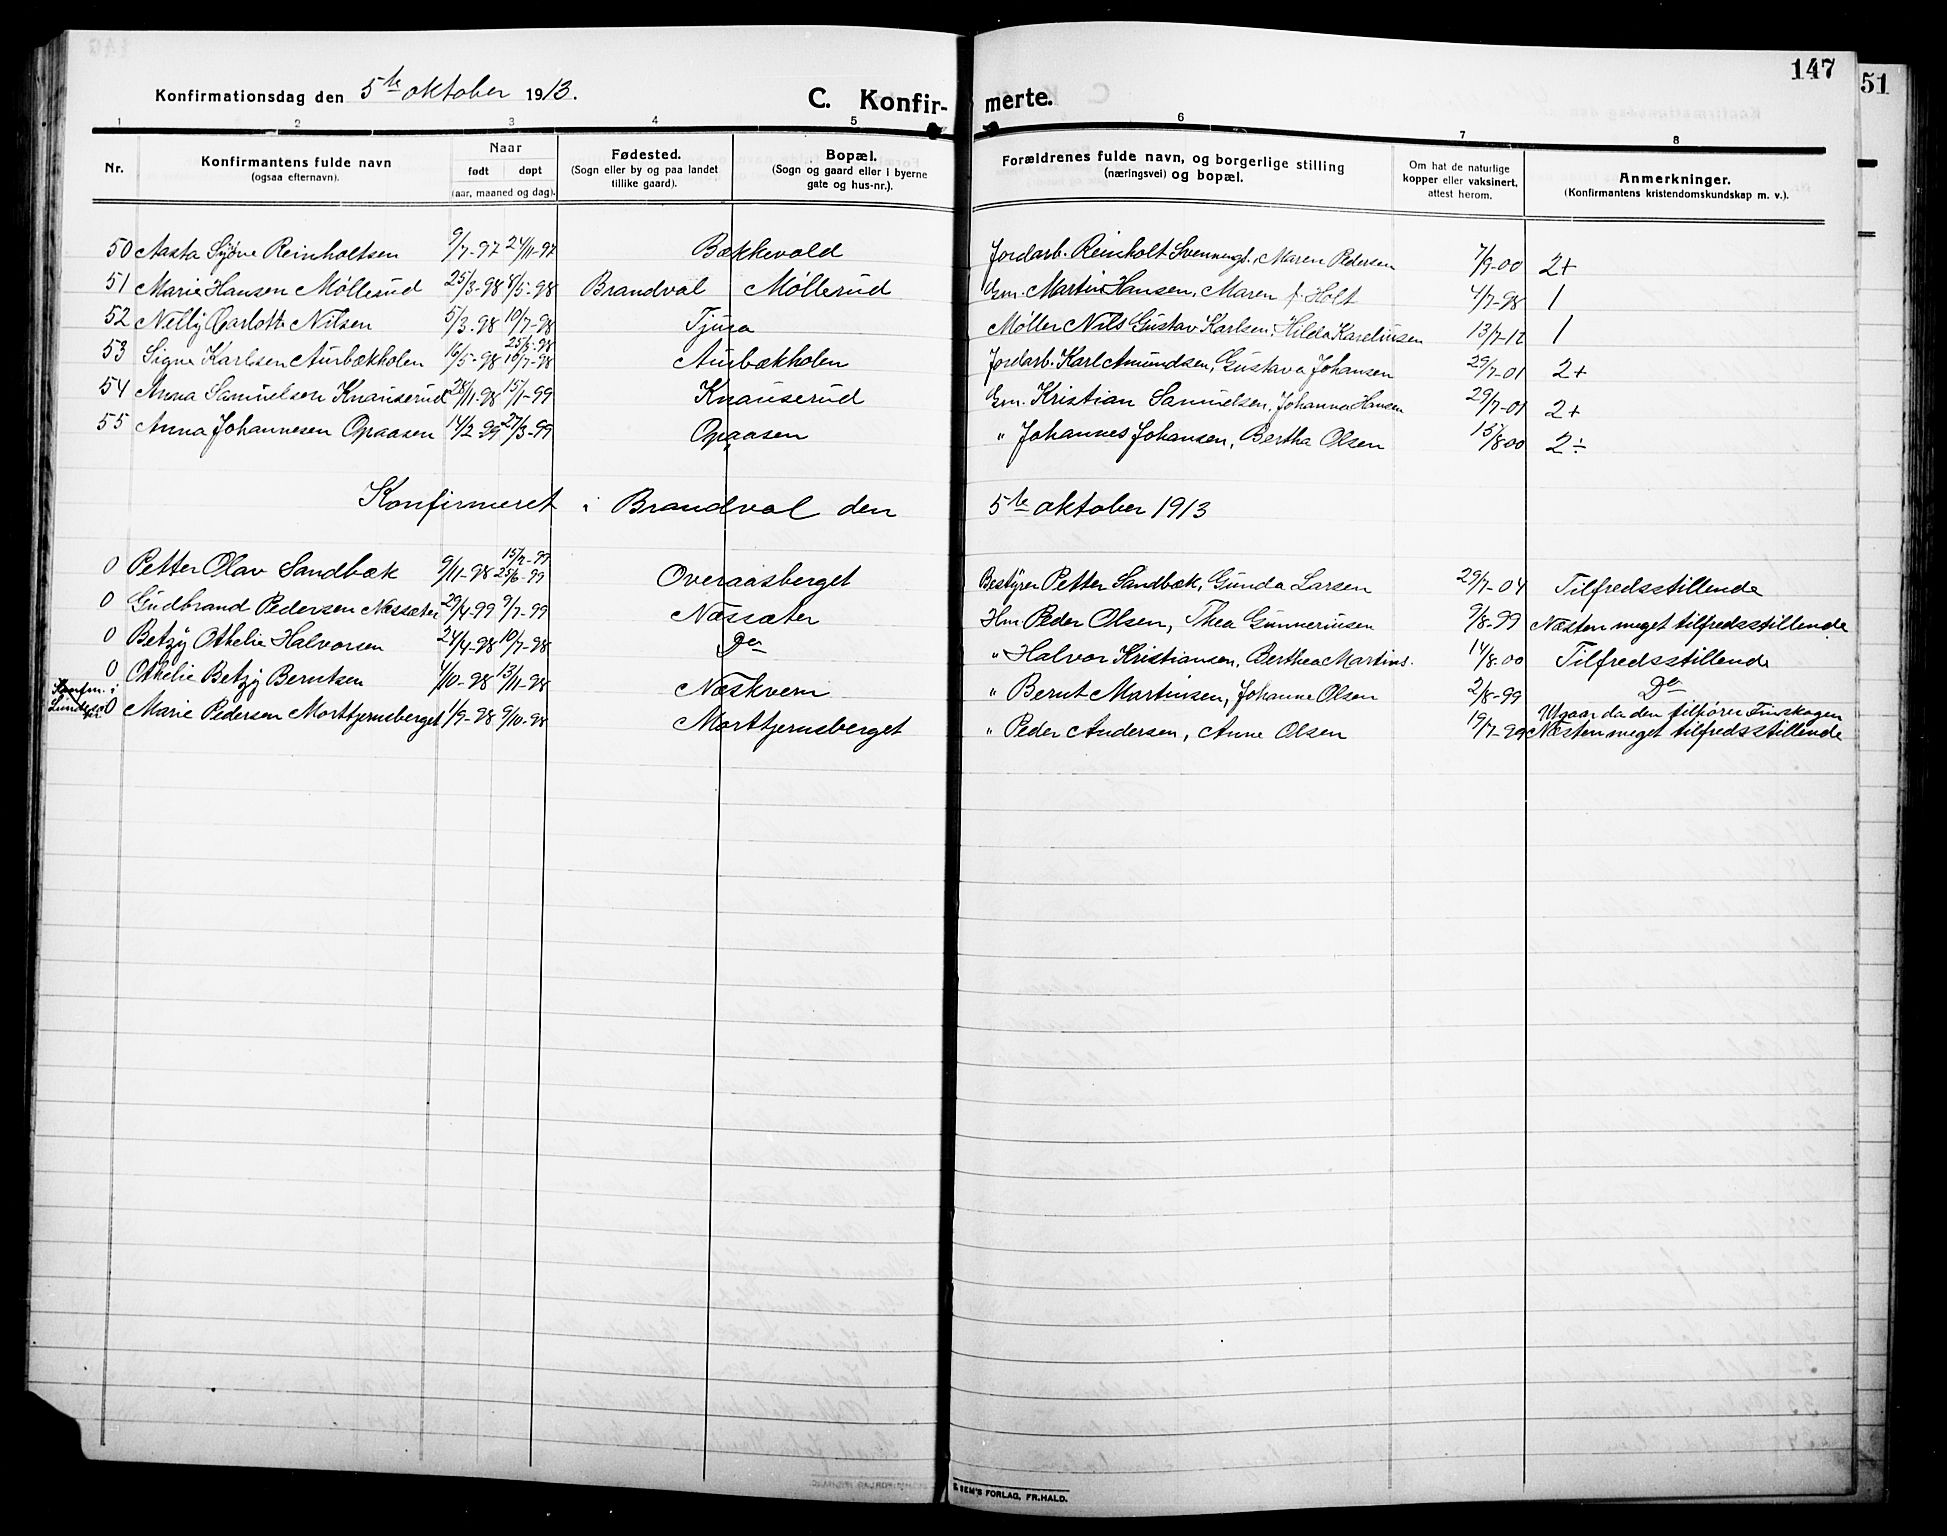 147
51
Konfirmationsdag den 5te oktober 1913.
C. Konfir- merte.
1 2 3 4 5 6 7 8
Nr. Konfirmantens fulde navn (ogsaa efternavn). Naar født døpt (aar, maaned og dag). Fødested. (Sogn eller by og paa landet tillike gaard). Bopæl. (Sogn og gaard eller i byerne gate og hus-nr.). Forældrenes fulde navn, og borgerlige stilling (næringsvei) og bopæl. Om hat de naturlige kopper eller vaksinert, attest herom. Anmerkninger. (Konfirmantens kristendomskundskap m. v.).
50 Aasta Syøve Reinholtsen 9/7-97 24/11-97 Bækkevold Jordarb. Reinholt Svennings., Maren Pedersen 7/9-00 2+
51 Marie Hansen Møllerud 25/3-98 8/5-98 Brandval Møllerud Gm. Martin Hansen, Maren f. Holt 4/7-98 1
52 Nelly Carlotte Nilsen 5/3-98 10/7-98 Tjura Møller Nils Gustav Karlsen, Hilda Karelinsen 13/7-12 1
53 Signe Karlsen Aurbækholen 16/5-98 25/5-98 16/7-98 Aurbækholen Jordarb. Karl Amundsen, Gustava Johansen 29/7-01 2+
54 Anna Samuelsen Knauserud 28/11-98 15/1-99 Knauserud Gm. Kristian Samuelsen, Johanna Hansen 29/7-01 2+
55 Anna Johannesen Opaasen 14/2-99 27/3-99 Opaasen " Johannes Johansen, Bertha Olsen 15/8-00 2÷
Konfirmeret i Brandval den 5te oktober 1913
0 Petter Olav Sandbæk 9/11-98 15/2-99 25/6-99 Overaasberget Bestyrer Petter Sandbæk, Gunda Larsen 29/7-04 Tilfredsstillende
0 Gudbrand Pedersen Næssæter 29/4-99 9/7-99 Næssæter Hm Peder Olsen, Thea Gunneriusen 9/8-99 Næsten meget tilfredsstillende
0 Betzy Othelie Halvorsen 24/4-98 10/7-98 Do " Halvor Kristiansen, Berthea Martins. 14/8-00 Tilfredsstillende
0 Othelie Betzy Berntsen 1/10-98 13/11-98 Næskvern " Bernt Martinsen, Johanne Olsen 2/8-99 Do
Konfm. i Lundersæter 0 Marie Pedersen Morttjernsberget 1/9-98 9/10-98 Morttjernsberget " Peder Andersen, Anne Olsen 19/7-99 Utgaar da den tilhører Finskogen Næsten meget tilfredsstillende
E. SEM'S FORLAG, FR.HALD.